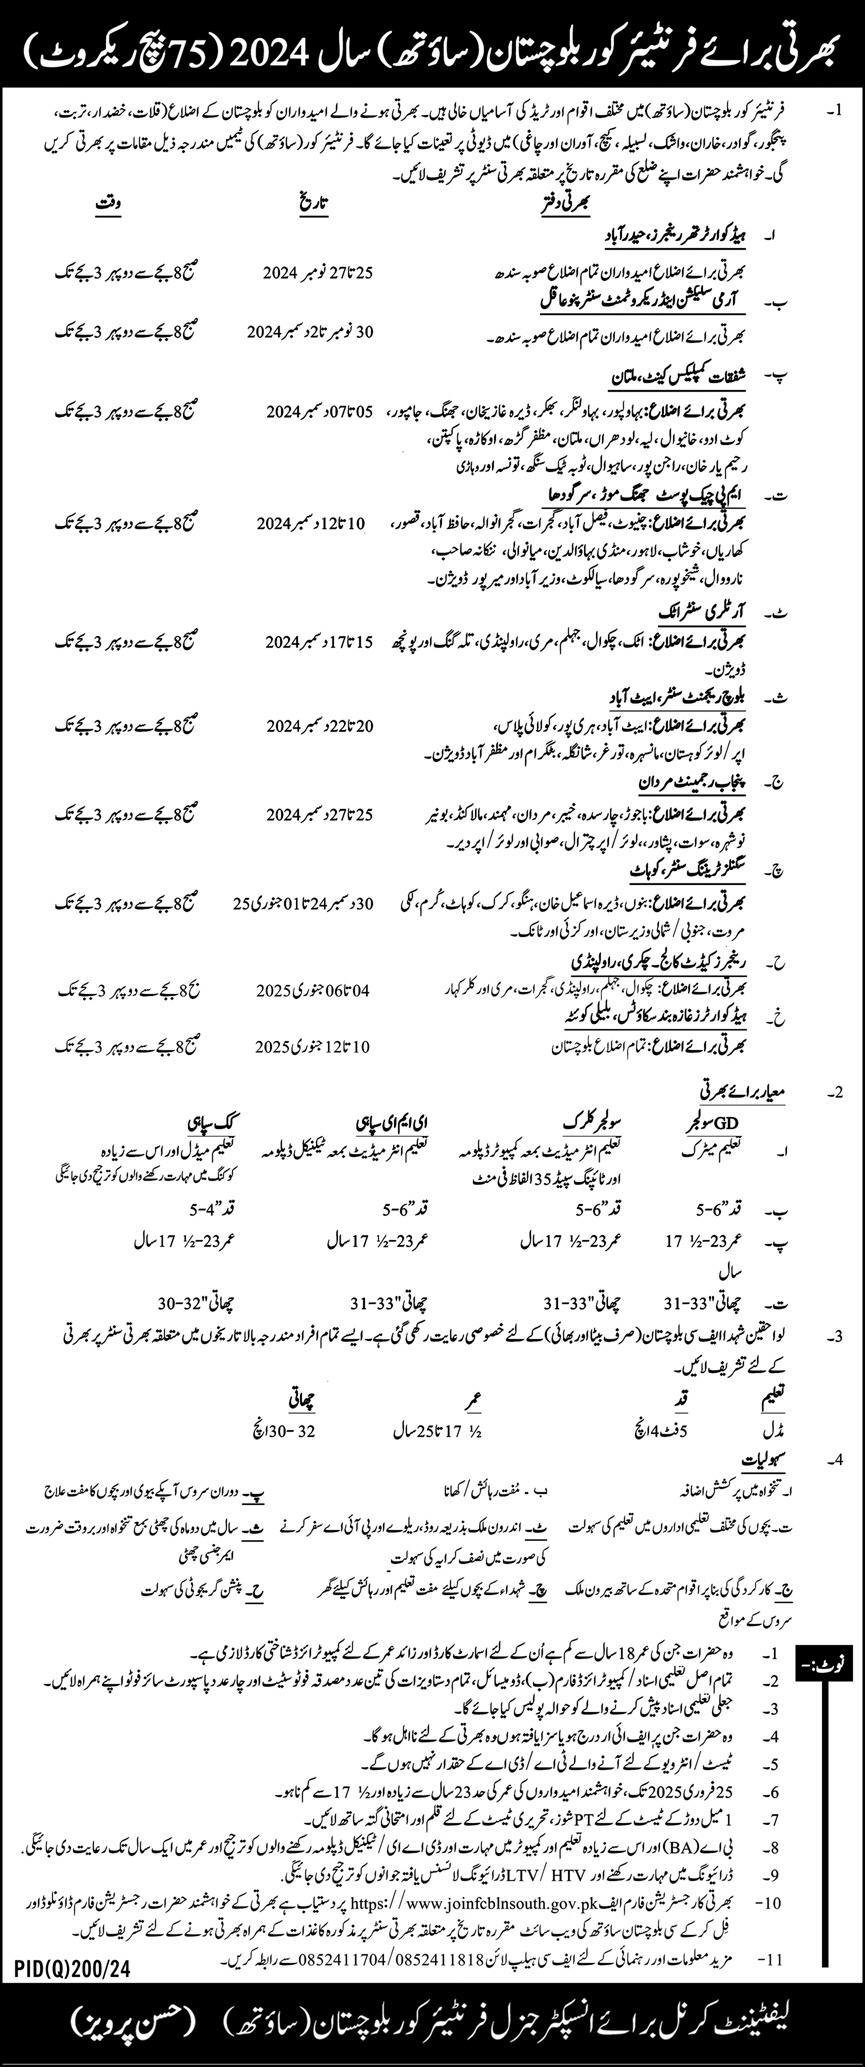 بھرتی برائے فرنٹیئر کور بلوچستان (ساؤتھ) سال 2024 (75 بیچ ریکروٹ)
1۔ فرنٹیئر کور بلوچستان (ساؤتھ) میں مختلف اقوام اور ٹریڈ کی آسامیاں خالی ہیں۔ بھرتی ہونے والے امیدواران کو بلوچستان کے اضلاع (قلات، خضدار، تربت،
پنجگور، گوادر، خاران، واشک، لسبیلہ، کیچ، آوران اور چاغی) میں ڈیوٹی پر تعینات کیا جائے گا۔ فرنٹیئر کور (ساؤتھ) کی ٹیمیں مندرجہ ذیل مقامات پر بھرتی کریں
گی۔ خواہشمند حضرات اپنے ضلع کی مقررہ تاریخ پر متعلقہ بھرتی سنٹر پر تشریف لائیں۔
بھرتی دفتر تاریخ وقت
ا۔ ہیڈ کوارٹر تھر رینجرز، حیدرآباد
بھرتی برائے اضلاع امیدواران تمام اضلاع صوبہ سندھ 25 تا 27 نومبر 2024 صبح 8 بجے سے دوپہر 3 بجے تک
ب۔ آرمی سلیکشن اینڈ ریکروٹمنٹ سنٹر پنو عاقل
بھرتی برائے اضلاع امیدواران تمام اضلاع صوبہ سندھ۔ 30 نومبر تا 2 دسمبر 2024 صبح 8 بجے سے دوپہر 3 بجے تک
پ۔ شفقات کمپلیکس کینٹ، ملتان
بھرتی برائے اضلاع: بہاولپور، بہاولنگر، بھکر، ڈیرہ غازیخان، جھنگ، جامپور، 05 تا 07 دسمبر 2024 صبح 8 بجے سے دوپہر 3 بجے تک
کوٹ ادو، خانیوال، لیہ، لودھراں، ملتان، مظفر گڑھ، اوکاڑہ، پاکپتن،
رحیم یار خان، راجن پور، ساہیوال، ٹوبہ ٹیک سنگھ، تونسہ اور وہاڑی
ت۔ ایم پی چیک پوسٹ جھنگ موڑ، سرگودھا
بھرتی برائے اضلاع: چنیوٹ، فیصل آباد، گجرات، گجرانوالہ، حافظ آباد، قصور، 10 تا 12 دسمبر 2024 صبح 8 بجے سے دوپہر 3 بجے تک
کھاریاں، خوشاب، لاہور، منڈی بہاؤالدین، میانوالی، ننکانہ صاحب،
نارووال، شیخوپورہ، سرگودھا، سیالکوٹ، وزیر آباد اور میرپور ڈویژن۔
ٹ۔ آرٹلری سنٹر اٹک
بھرتی برائے اضلاع: اٹک، چکوال، جہلم، مری، راولپنڈی، تلہ گنگ اور پونچھ 15 تا 17 دسمبر 2024 صبح 8 بجے سے دوپہر 3 بجے تک
ڈویژن۔
ث۔ بلوچ ریجمنٹ سنٹر، ایبٹ آباد
بھرتی برائے اضلاع: ایبٹ آباد، ہری پور، کولائی پلاس، 20 تا 22 دسمبر 2024 صبح 8 بجے سے دوپہر 3 بجے تک
اپر/لوئر کوہستان، مانسہرہ، تورغر، شانگلہ، بٹگرام اور مظفر آباد ڈویژن۔
ج۔ پنجاب رجمینٹ مردان
بھرتی برائے اضلاع: باجوڑ، چارسدہ، خیبر، مردان، مہمند، مالاکنڈ، بونیر 25 تا 27 دسمبر 2024 صبح 8 بجے سے دوپہر 3 بجے تک
نوشہرہ، سوات، پشاور،، لوئر/اپر چترال، صوابی اور لوئر/اپر دیر۔
چ۔ سگنلز ٹریننگ سنٹر، کوہاٹ
بھرتی برائے اضلاع: بنوں، ڈیرہ اسماعیل خان، ہنگو، کرک، کوہاٹ، کُرم، لکی 30 دسمبر 24 تا 01 جنوری 25 صبح 8 بجے سے دوپہر 3 بجے تک
مروت، جنوبی/شمالی وزیرستان، اورکزئی اور ٹانک۔
ح۔ رینجرز کیڈٹ کالج۔ چکری، راولپنڈی
بھرتی برائے اضلاع: چکوال، جہلم، راولپنڈی، گجرات، مری اور کلر کہار 04 تا 06 جنوری 2025 بج 8 بجے سے دوپہر 3 بجے تک
خ۔ ہیڈ کوارٹرز غازہ بند سکاؤٹس، بلیلی کوئٹہ
بھرتی برائے اضلاع: تمام اضلاع بلوچستان 10 تا 12 جنوری 2025 صبح 8 بجے سے دوپہر 3 بجے تک
2۔ معیار برائے بھرتی
GD سولجر سولجر کلرک ای ایم ای سپاہی کک سپاہی
ا۔ تعلیم میٹرک تعلیم انٹر میڈیٹ بمعہ کمپیوٹر ڈپلومہ تعلیم انٹر میڈیٹ بمعہ ٹیکنیکل ڈپلومہ تعلیم میڈل اور اس سے زیادہ
اور ٹائپنگ سپیڈ 35 الفاظ فی منٹ کوکنگ میں مہارت رکھنے والوں کو ترجیح دی جائیگی
ب۔ قد 5-6" قد 5-6" قد 5-6" قد 5-4"
پ۔ عمر 23-½ 17 عمر 23-½ 17 سال عمر 23-½ 17 سال عمر 23-½ 17 سال
سال
ت۔ چھاتی "33-31 چھاتی "33-31 چھاتی "33-31 چھاتی "32-30
3۔ لواحقین شہدا ایف سی بلوچستان (صرف بیٹا اور بھائی) کے لئے خصوصی رعایت رکھی گئی ہے۔ ایسے تمام افراد مندرجہ بالا تاریخوں میں متعلقہ بھرتی سنٹر پر بھرتی
کے لئے تشریف لائیں۔
تعلیم قد عمر چھاتی
مڈل 5 فٹ 4 انچ ½ 17 تا 25 سال 32 -30 انچ
4۔ سہولیات
ا۔ تنخواہ میں پرکشش اضافہ ب۔ مُفت رہائش/کھانا پ۔ دوران سروس آپکے بیوی اور بچوں کا مفت علاج
ت۔ بچوں کی مختلف تعلیمی اداروں میں تعلیم کی سہولت ٹ۔ اندرون ملک بذریعہ روڈ، ریلوے اور پی آئی اے سفر کرنے ث۔ سال میں دو ماہ کی چھٹی بمع تنخواہ اور بروقت ضرورت
کی صورت میں نصف کرایہ کی سہولت ایمرجنسی چھٹی
ج۔ کارکردگی کی بنا پر اقوام متحدہ کے ساتھ بیرون ملک چ۔ شہداء کے بچوں کیلئے مفت تعلیم اور رہائش کیلئے گھر ح۔ پنشن گریجوٹی کی سہولت
سروس کے مواقع
نوٹ:-
1۔ وہ حضرات جن کی عمر 18 سال سے کم ہے اُن کے لئے اسمارٹ کارڈ اور زائد عمر کے لئے کمپیوٹرائزڈ شناختی کارڈ لازمی ہے۔
2۔ تمام اصل تعلیمی اسناد/کمپیوٹرائزڈ فارم (ب)، ڈومیسائل، تمام دستاویزات کی تین عدد مصدقہ فوٹوسٹیٹ اور چار عدد پاسپورٹ سائز فوٹو اپنے ہمراہ لائیں۔
3۔ جعلی تعلیمی اسناد پیش کرنے والے کو حوالہ پولیس کیا جائے گا۔
4۔ وہ حضرات جن پر ایف آئی ار درج ہو یا سزا یافتہ ہوں وہ بھرتی کے لئے نااہل ہو گا۔
5۔ ٹیسٹ/انٹرویو کے لئے آنے والے ٹی اے/ڈی اے کے حقدار نہیں ہوں گے۔
6۔ 25 فروری 2025 تک، خواہشمند امیدواروں کی عمر کی حد 23 سال سے زیادہ اور ½ 17 سے کم نا ہو۔
7۔ 1 میل دوڑ کے ٹیسٹ کے لئے PT شوز، تحریری ٹیسٹ کے لئے قلم اور امتحانی گتہ ساتھ لائیں۔
8۔ بی اے (BA) اور اس سے زیادہ تعلیم اور کمپیوٹر میں مہارت اور ڈی اے ای/ٹیکنیکل ڈپلومہ رکھنے والوں کو ترجیح اور عمر میں ایک سال تک رعایت دی جائیگی۔
9۔ ڈرائیونگ میں مہارت رکھنے اور LTV/ HTV ڈرائیونگ لائسنس یافتہ جوانوں کو ترجیح دی جائیگی۔
10۔ بھرتی کا رجسٹریشن فارم ایف https://www.joinfcblnsouth.gov.pk پر دستیاب ہے بھرتی کے خواہشمند حضرات رجسٹریشن فارم ڈاؤنلوڈ اور
فِل کر کے سی بلوچستان ساؤتھ کی ویب سائٹ مقررہ تاریخ پر متعلقہ بھرتی سنٹر پر مذکورہ کاغذات کے ہمراہ بھرتی ہونے کے لئے تشریف لائیں۔
11۔ مزید معلومات اور رہنمائی کے لئے ایف سی ہیلپ لائن 0852411704/0852411818 سے رابطہ کریں۔
PID(Q)200/24
لیفٹیننٹ کرنل برائے انسپکٹر جنرل فرنٹیئر کور بلوچستان (ساؤتھ) (حسن پرویز)